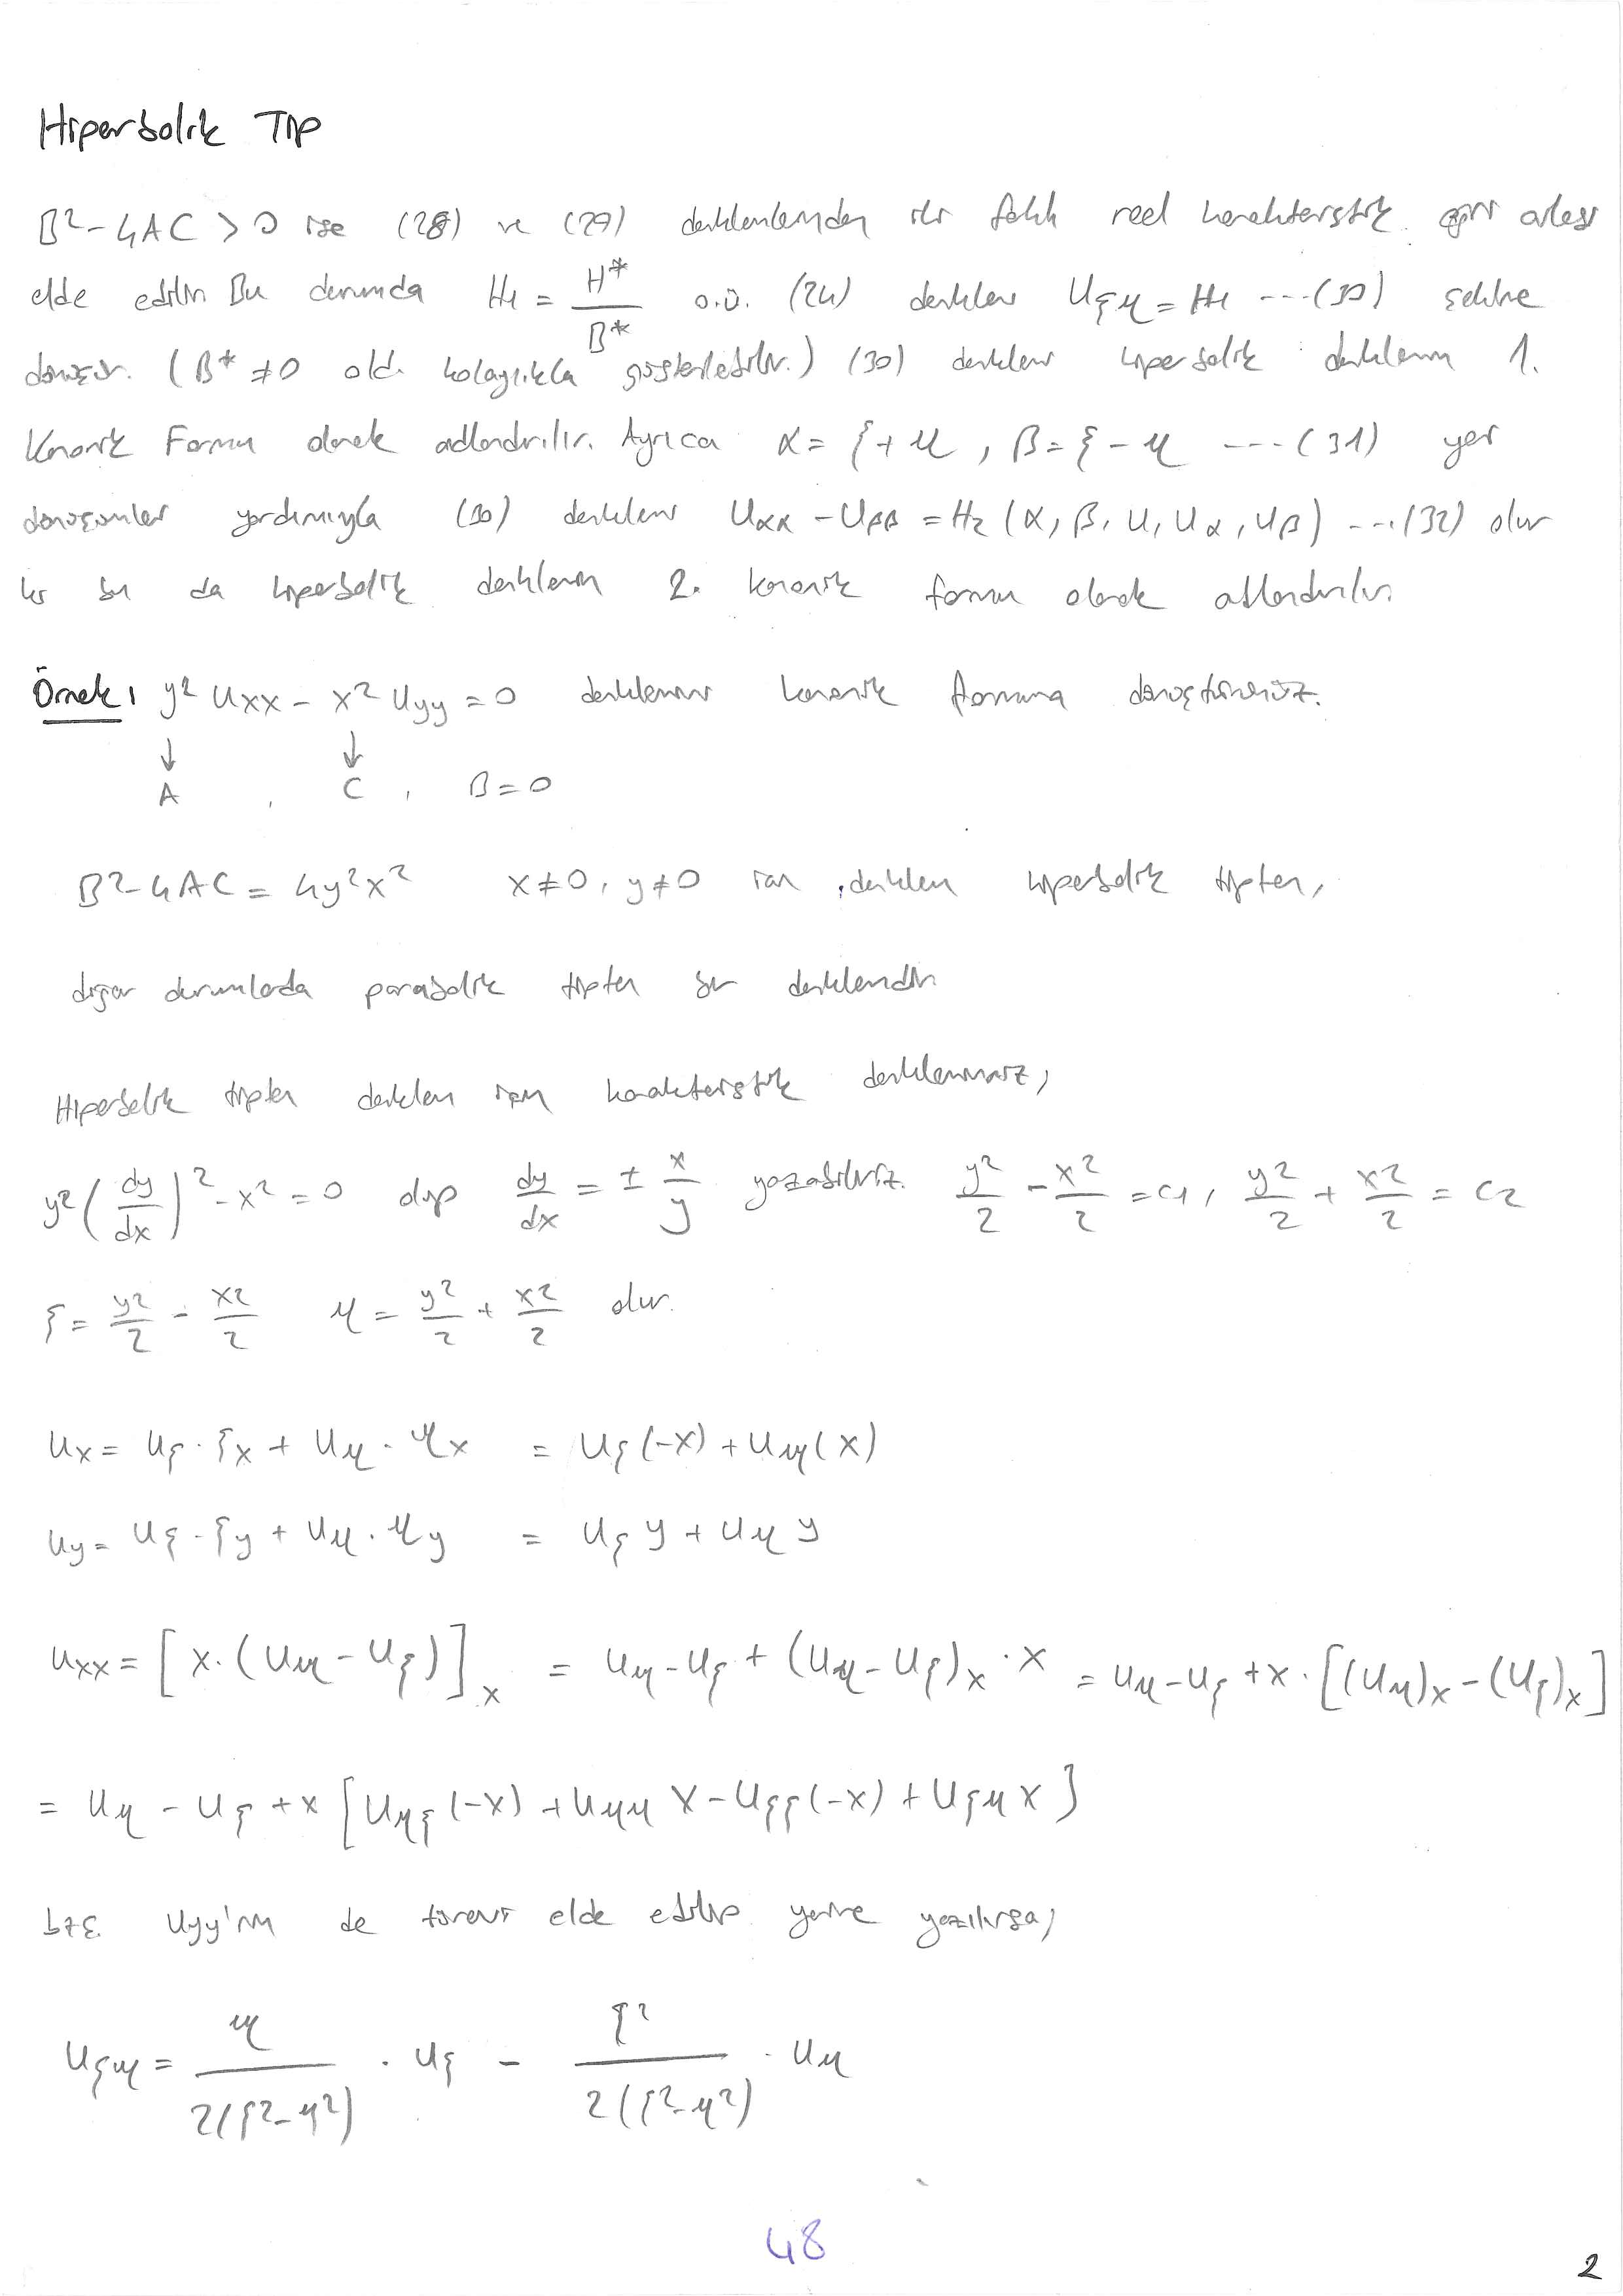 Hiperbolik Tip
B²-4AC > 0 ise (28) ve (29) denklemlerinden iki farklı reel karakteristik eğri ailesi
elde edilir. Bu durumda H₁ = H*/B* o.ü. (24) denklemi Uξη = H₁ ---(30) şekline
dönüşür. (B* ≠ 0 old. kolaylıkla gösterilebilir.) (30) denklemi hiperbolik denklemin 1.
Kanonik Formu olarak adlandırılır. Ayrıca α = ξ+η, β = ξ-η ---(31) yeni
dönüşümler yardımıyla (30) denklemi Uαα - Uββ = H₂(α, β, u, uα, uβ) ---(32) olur
ki bu da hiperbolik denklemin 2. kanonik formu olarak adlandırılır.
Örnek: y² uxx - x² uyy = 0 denklemini kanonik formuna dönüştürünüz.
↓ ↓
A , C , B=0
B²-4AC = 4y²x² x≠0, y≠0 için denklem hiperbolik tipten,
diğer durumlarda parabolik tipten bir denklemdir.
Hiperbolik tipten denklem için karakteristik denklemimiz,
y²(dy/dx)² - x² = 0 olup dy/dx = ± x/y yazabiliriz. y²/2 - x²/2 = c1, y²/2 + x²/2 = c2
ξ = y²/2 - x²/2 η = y²/2 + x²/2 olur.
ux = uξ · ξx + uη · ηx = uξ(-x) + uη(x)
uy = uξ · ξy + uη · ηy = uξ y + uη y
uxx = [x·(uη - uξ)]x = uη - uξ + (uη - uξ)x · x = uη - uξ + x·[(uη)x - (uξ)x]
= uη - uξ + x[uηξ(-x) + uηη x - uξξ(-x) + uξη x]
bzş. uyy'nin de türevi elde edilip yerine yazılırsa,
uξη = η/2(ξ²-η²) · uξ - ξ²/2(ξ²-η²) · uη
48
2